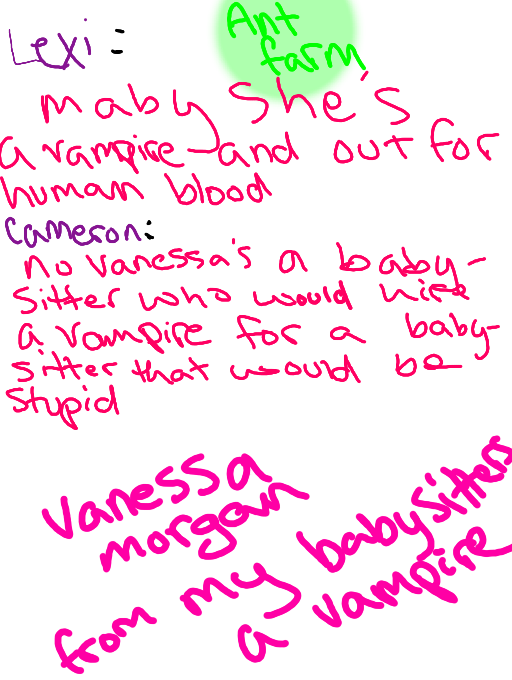 Ant
farm
Lexi:
maby she's
a vampire and out for
human blood
Cameron:
no vanessa's a baby-
sitter who would hire
a vampire for a baby-
sitter that would be
stupid
vanessa
morgan
from my babysitters
a vampire